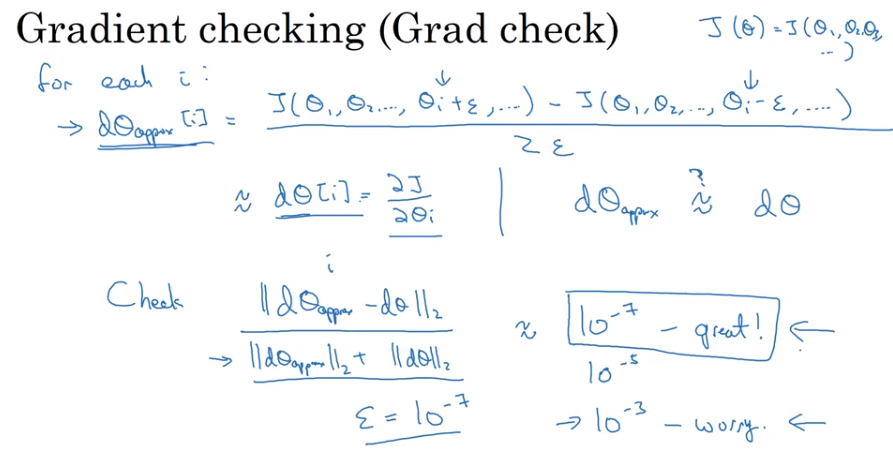 Gradient checking (Grad check)
J(θ) = J(θ₁, θ₂, θ₃, ...)
for each i:
→ dθapprox[i] = J(θ₁, θ₂, ..., θᵢ+ε, ...) - J(θ₁, θ₂, ..., θᵢ-ε, ....)
2ε
≈ dθ[i] = ∂J/∂θᵢ | dθapprox ≈? dθ
i
Check ||dθapprox - dθ||₂
→ ||dθapprox||₂ + ||dθ||₂
≈ 10⁻⁷ - great! ←
10⁻⁵
ε = 10⁻⁷
→ 10⁻³ - worry. ←